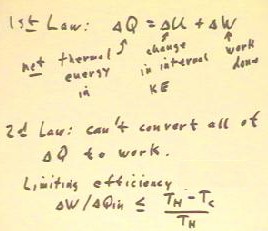 1st Law: ΔQ = ΔU + ΔW
net thermal energy in
change in internal KE
work done
2d Law: can't convert all of
ΔQ to work.
Limiting efficiency
ΔW/ΔQin ≤ TH - Tc
TH